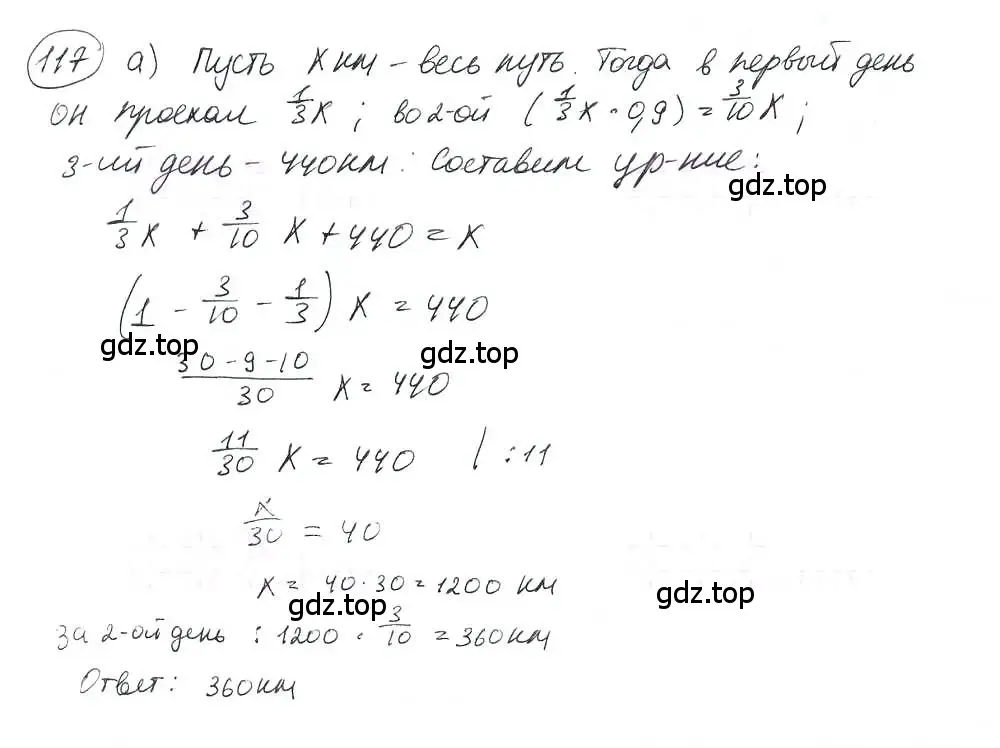 117 а) Пусть X км – весь путь. Тогда в первый день
он проехал 1/3 X ; во 2-ой (1/3 X · 0,9) = 3/10 X ;
3-ий день – 440 км. Составим ур-ние:
gdz.top
1/3 X + 3/10 X + 440 = X
(1 - 3/10 - 1/3) X = 440
gdz.top
gdz.top
(30 - 9 - 10)/30 X = 440
11/30 X = 440 | : 11
X/30 = 40
X = 40 · 30 = 1200 км
gdz.top
gdz.top
за 2-ой день : 1200 · 3/10 = 360 км
Ответ: 360 км